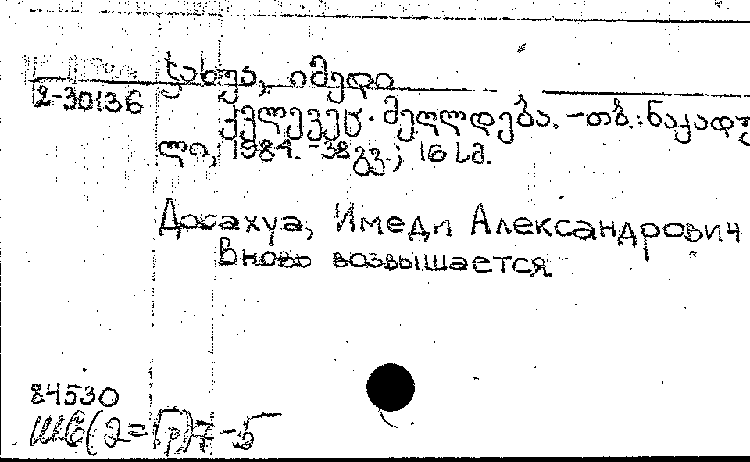 ჯახუა, იმედი
2-30136
კვლავაც მეღლდება. - თბ.: ნაკადუ
ლი, 1984. - 38გვ.; 16 სმ.
Джахуа, Имеди Александрович
Вновь возвышается
84530